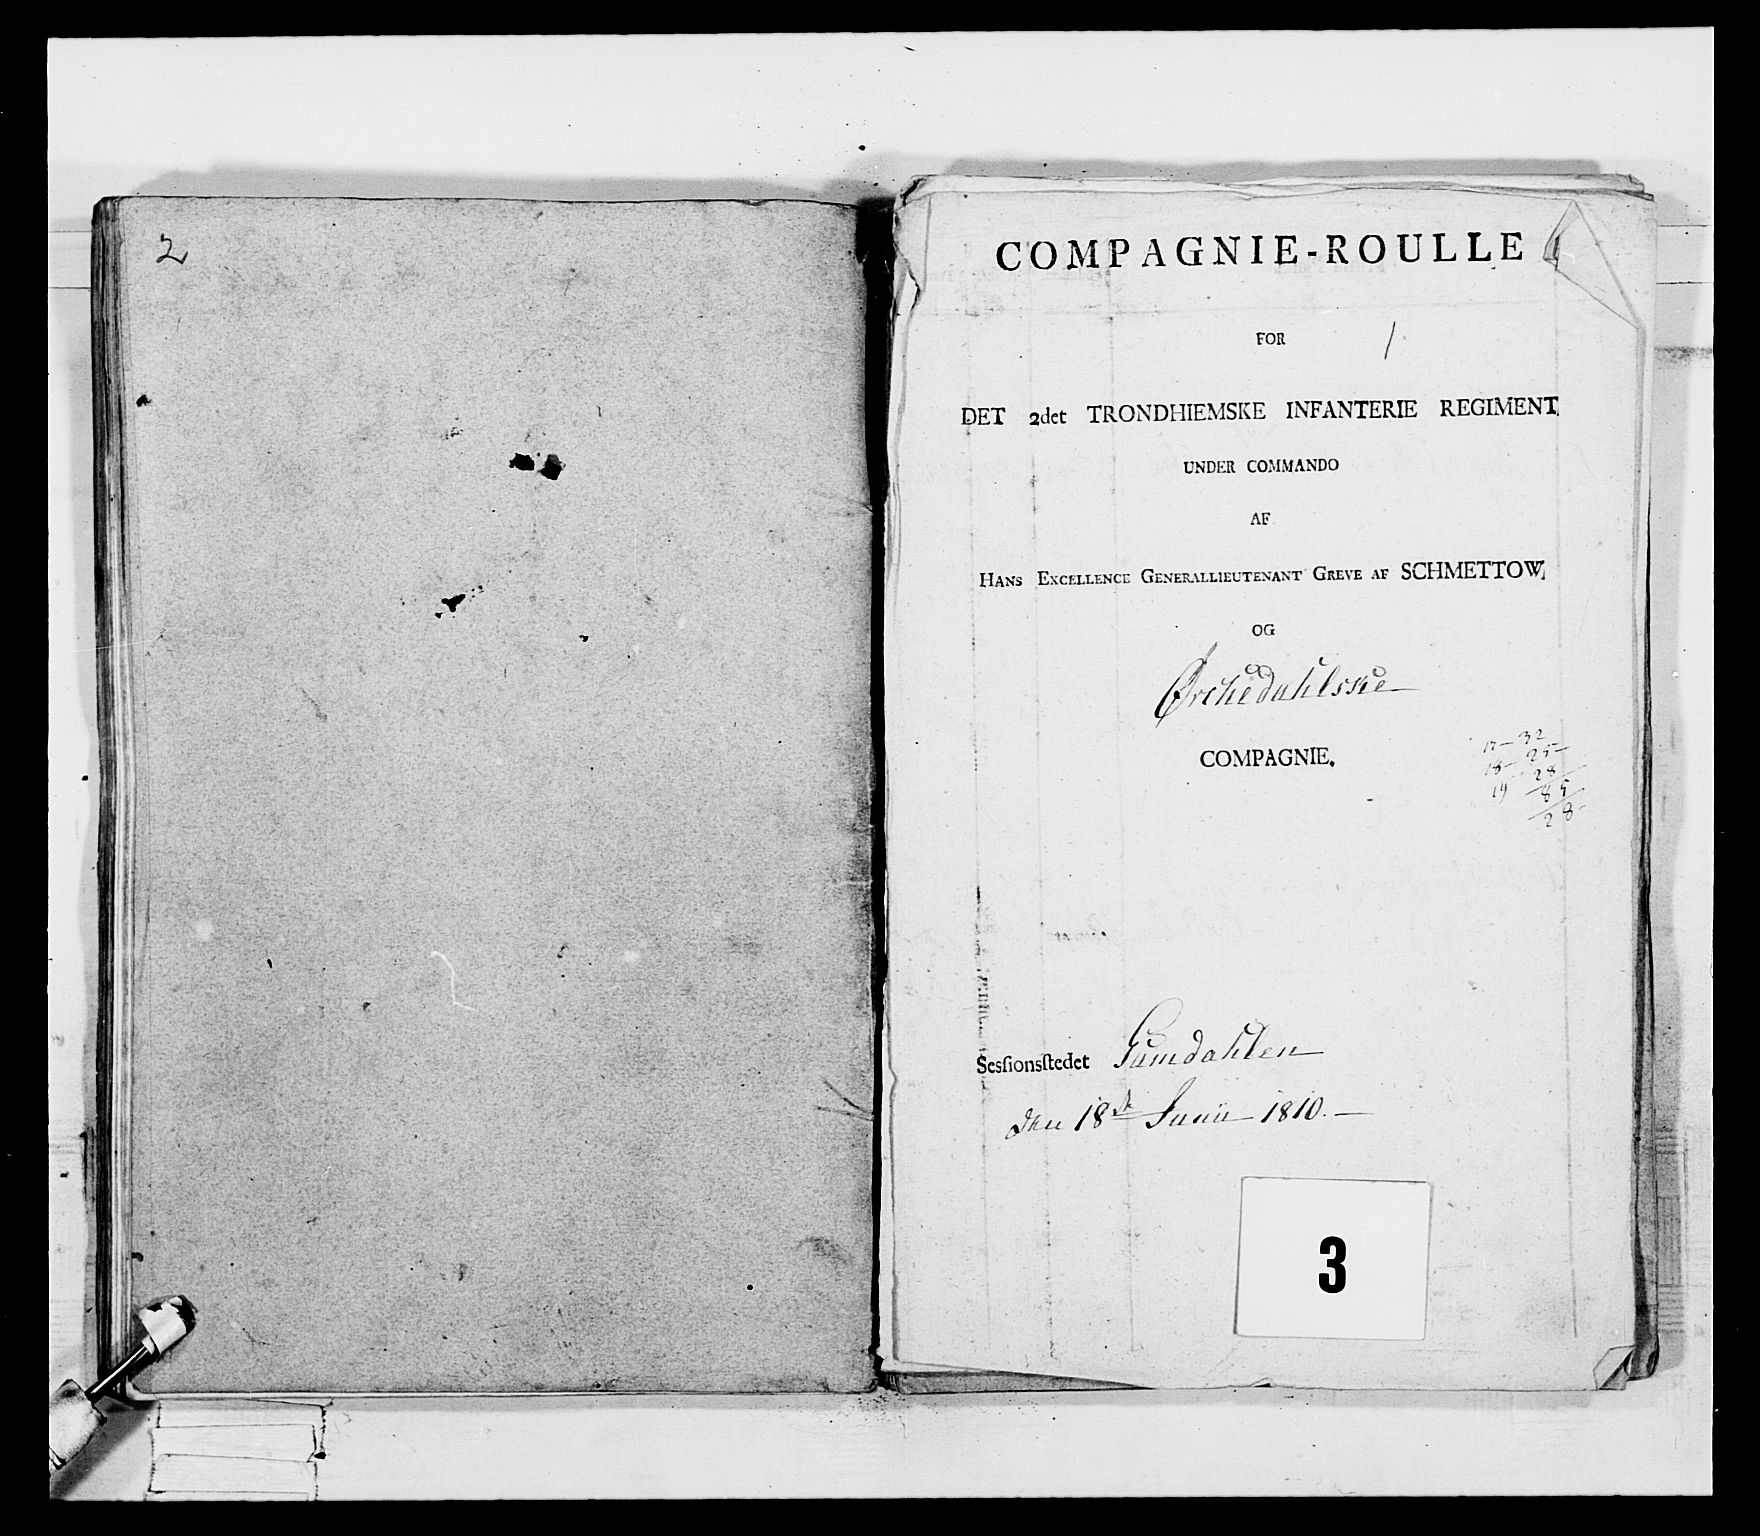 2
COMPAGNIE-ROULLE
FOR
1
DET 2det TRONDHIEMSKE INFANTERIE REGIMENT,
UNDER COMMANDO
AF
HANS EXCELLENCE GENERALLIEUTENANT GREVE AF SCHMETTOW,
OG
Ørchedahlske
COMPAGNIE.
17 – 32
18 – 25 –
19 28
85
28
Sesſionsſtedet
den 18de Junii 1810. –
3